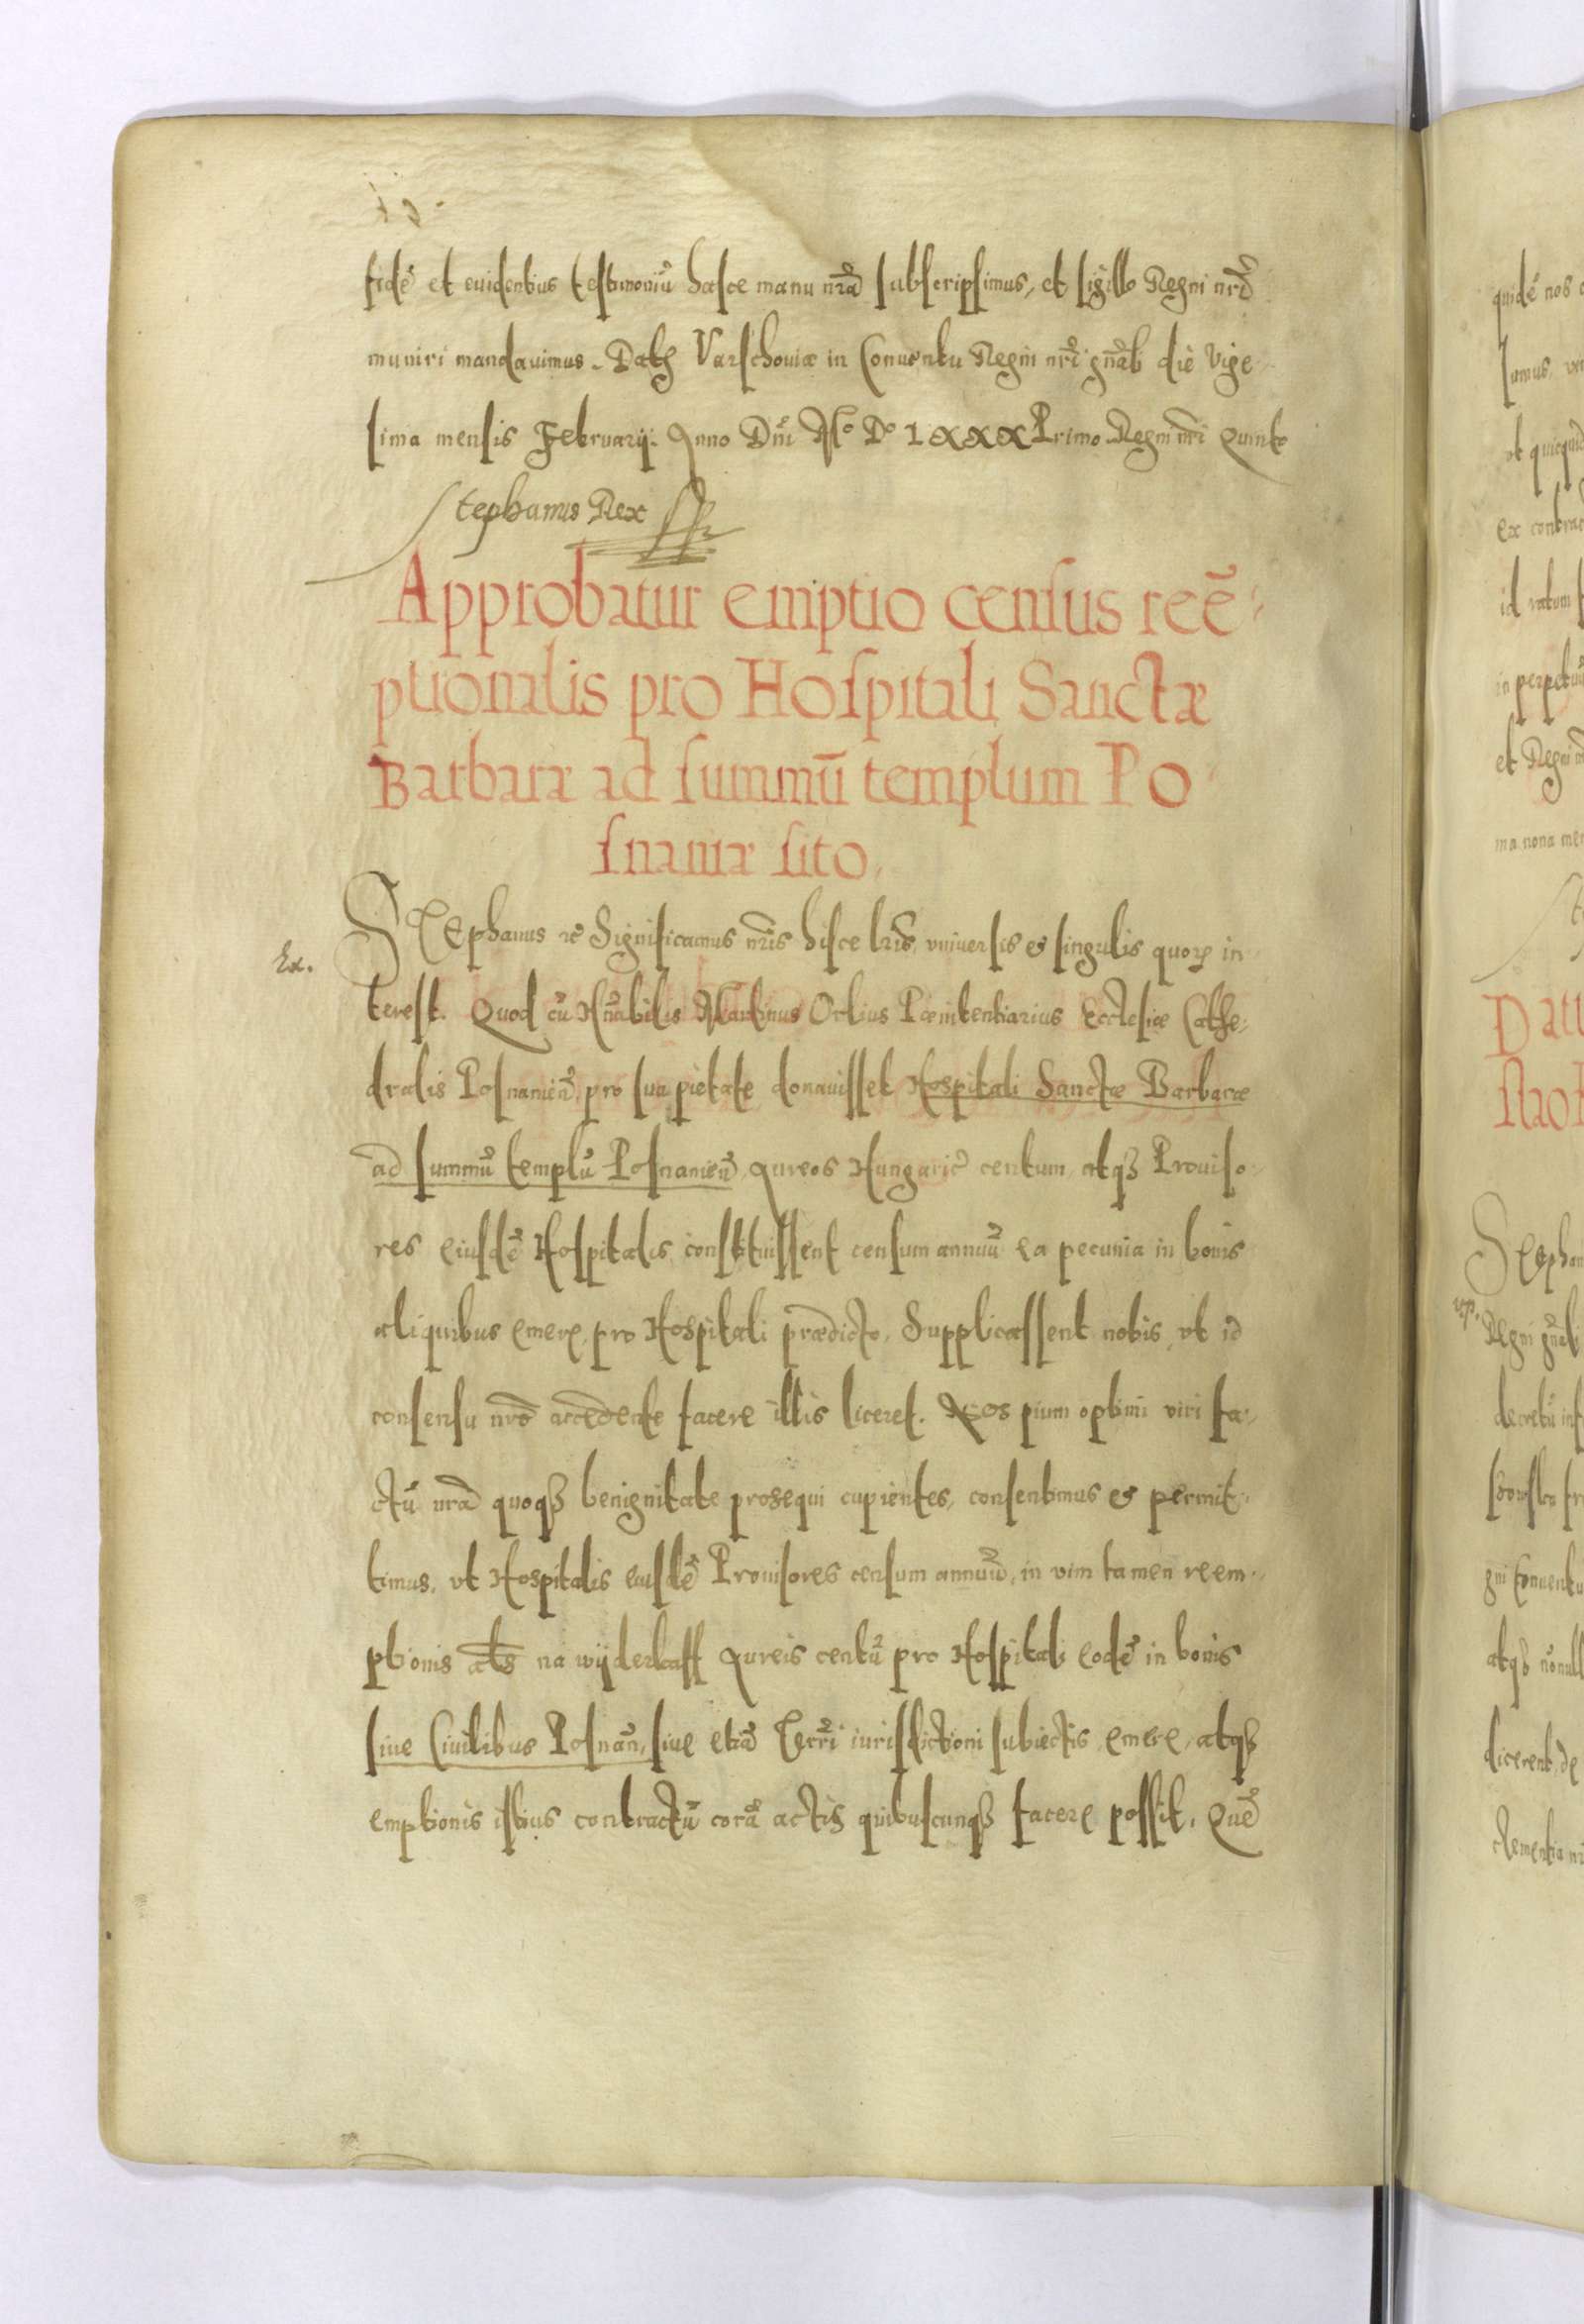 fidē et euidentius testimoniū hasce manu nr̄a subscripsimus, et sigillo Regni nr̄i
muniri mandauimus. Datȩ Varschouiæ in Conuentu Regni nr̄i gn̄ali die Vige
sima mensis Februarij. Anno Dn̄i Mº Dº LXXX Primo Regni nr̄i Quinto
Stephanus Rex
Approbatur emptio census reē
ptionalis pro Hospitali Sanctæ
Barbaræ ad summū templum Po
snaniæ sito.
Stephanus &c Significamus nr̄is hisce lr̄is vniuersis et singulis quoꝝ in
terest. Quod cū Hn̄abilis Martinus Oclius Pœnitentiarius Ecclesiæ Cathe
dralis Posnanien̄, pro sua pietate donauisset Hospitali Sanctæ Barbaræ
ad summū templū Posnanien̄, Aureos Hungaric̄ centum, atqȝ Prouiso
res eiusdē Hospitalis constituissent censum annuū ea pecunia in bonis
aliquibus emere, pro Hospitali prædicto, Supplicassent nobis, vt id
consensu nr̄o accedente facere illis liceret. Nos pium optimi viri fa
ctū nr̄a quoqȝ benignitate prosequi cupientes, consentimus et permit
timus, vt Hospitalis eiusdē Prouisores censum annuū, in vim tamen reem
ptionis al̄s na wyderkaff Aureis centū pro Hospitali eodē in bonis
siue Ciuilibus Posnan̄, siue etiā Terr̄i iurisdictioni subiectis emere, atqȝ
emptionis istius contractū corā actis quibuscunqȝ facere possit. Quē